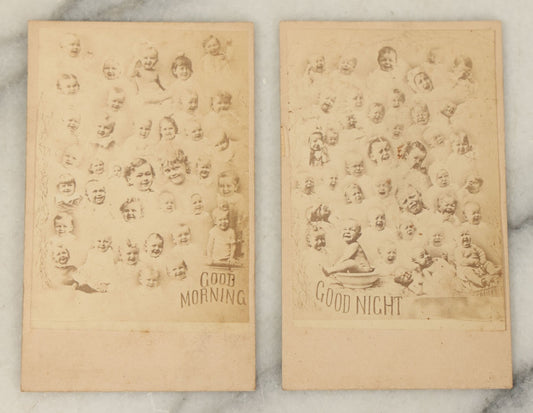 GOOD
MORNING
GOOD NIGHT